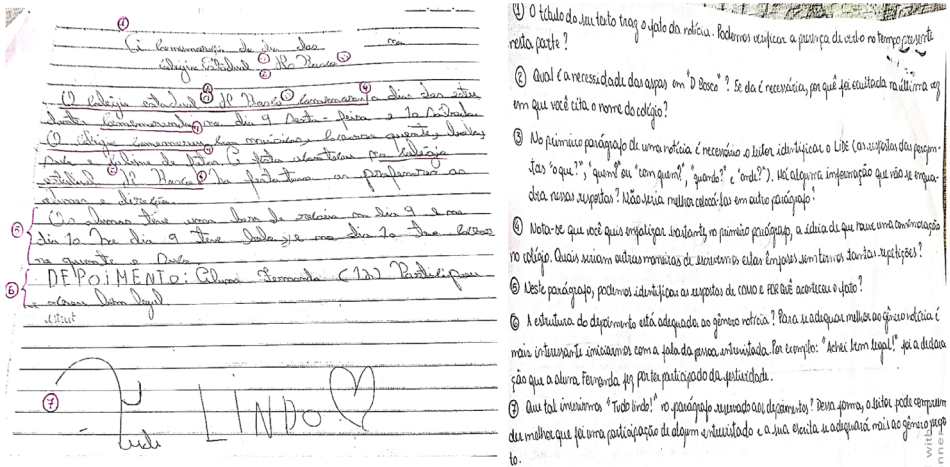 ①
A Comemoração do dia das na
Colégio Estadual ② "D Bosco" ②
O Colégio estadual ② "D Bosco" ② comemora ④ o dia das
comemorando ④ no dia 9 sexta-feira e 10 sábado
O colégio comemorou com músicas, cachorro quente, balas,
suco e A festa aconteceu no Colégio
estadual ② "D Bosco" ② Na festa os professores os
alunos e direção.
⑤ Os alunos teve uma hora de no dia 9 e no
dia 10 No dia 9 teve e no dia 10 teve
quente e suco
⑥ DEPOIMENTO: Aluna Fernanda (12) Participou
bem legal.
⑦ Tudo LINDO
① O título do seu texto traz o fato da notícia. Podemos verificar a presença de verbo no tempo presente
nesta parte?
② Qual é a necessidade das aspas em "D Bosco"? Se ela é necessária, por quê foi evitada na última vez
em que você cita o nome do colégio?
③ No primeiro parágrafo de uma notícia é necessário o leitor identificar o LIDE (as respostas das pergun-
tas "o que?", "quem?" ou "com quem?", "quando?" e "onde?"). Há alguma informação que não se enqua-
dra nessas respostas? Não seria melhor colocá-las em outro parágrafo?
④ Nota-se que você quis enfatizar bastante, no primeiro parágrafo, a ideia de que houve uma comemoração
no colégio. Quais seriam outras maneiras de escrevermos estas ênfases sem termos tantas repetições?
⑤ Neste parágrafo, podemos identificar as respostas de COMO e POR QUÊ aconteceu o fato?
⑥ A estrutura do depoimento está adequada ao gênero notícia? Para se adequar melhor ao gênero notícia é
mais interessante iniciarmos com a fala da pessoa entrevistada. Por exemplo: "Achei bem legal!" foi a declara-
ção que a aluna Fernanda fez por ter participado da festividade.
⑦ Que tal inserirmos "Tudo lindo!" no parágrafo reservado aos depoimentos? Dessa forma, o leitor pode compreen-
der melhor que foi uma participação de algum entrevistado e a sua escrita se adequará mais ao gênero propos-
to.